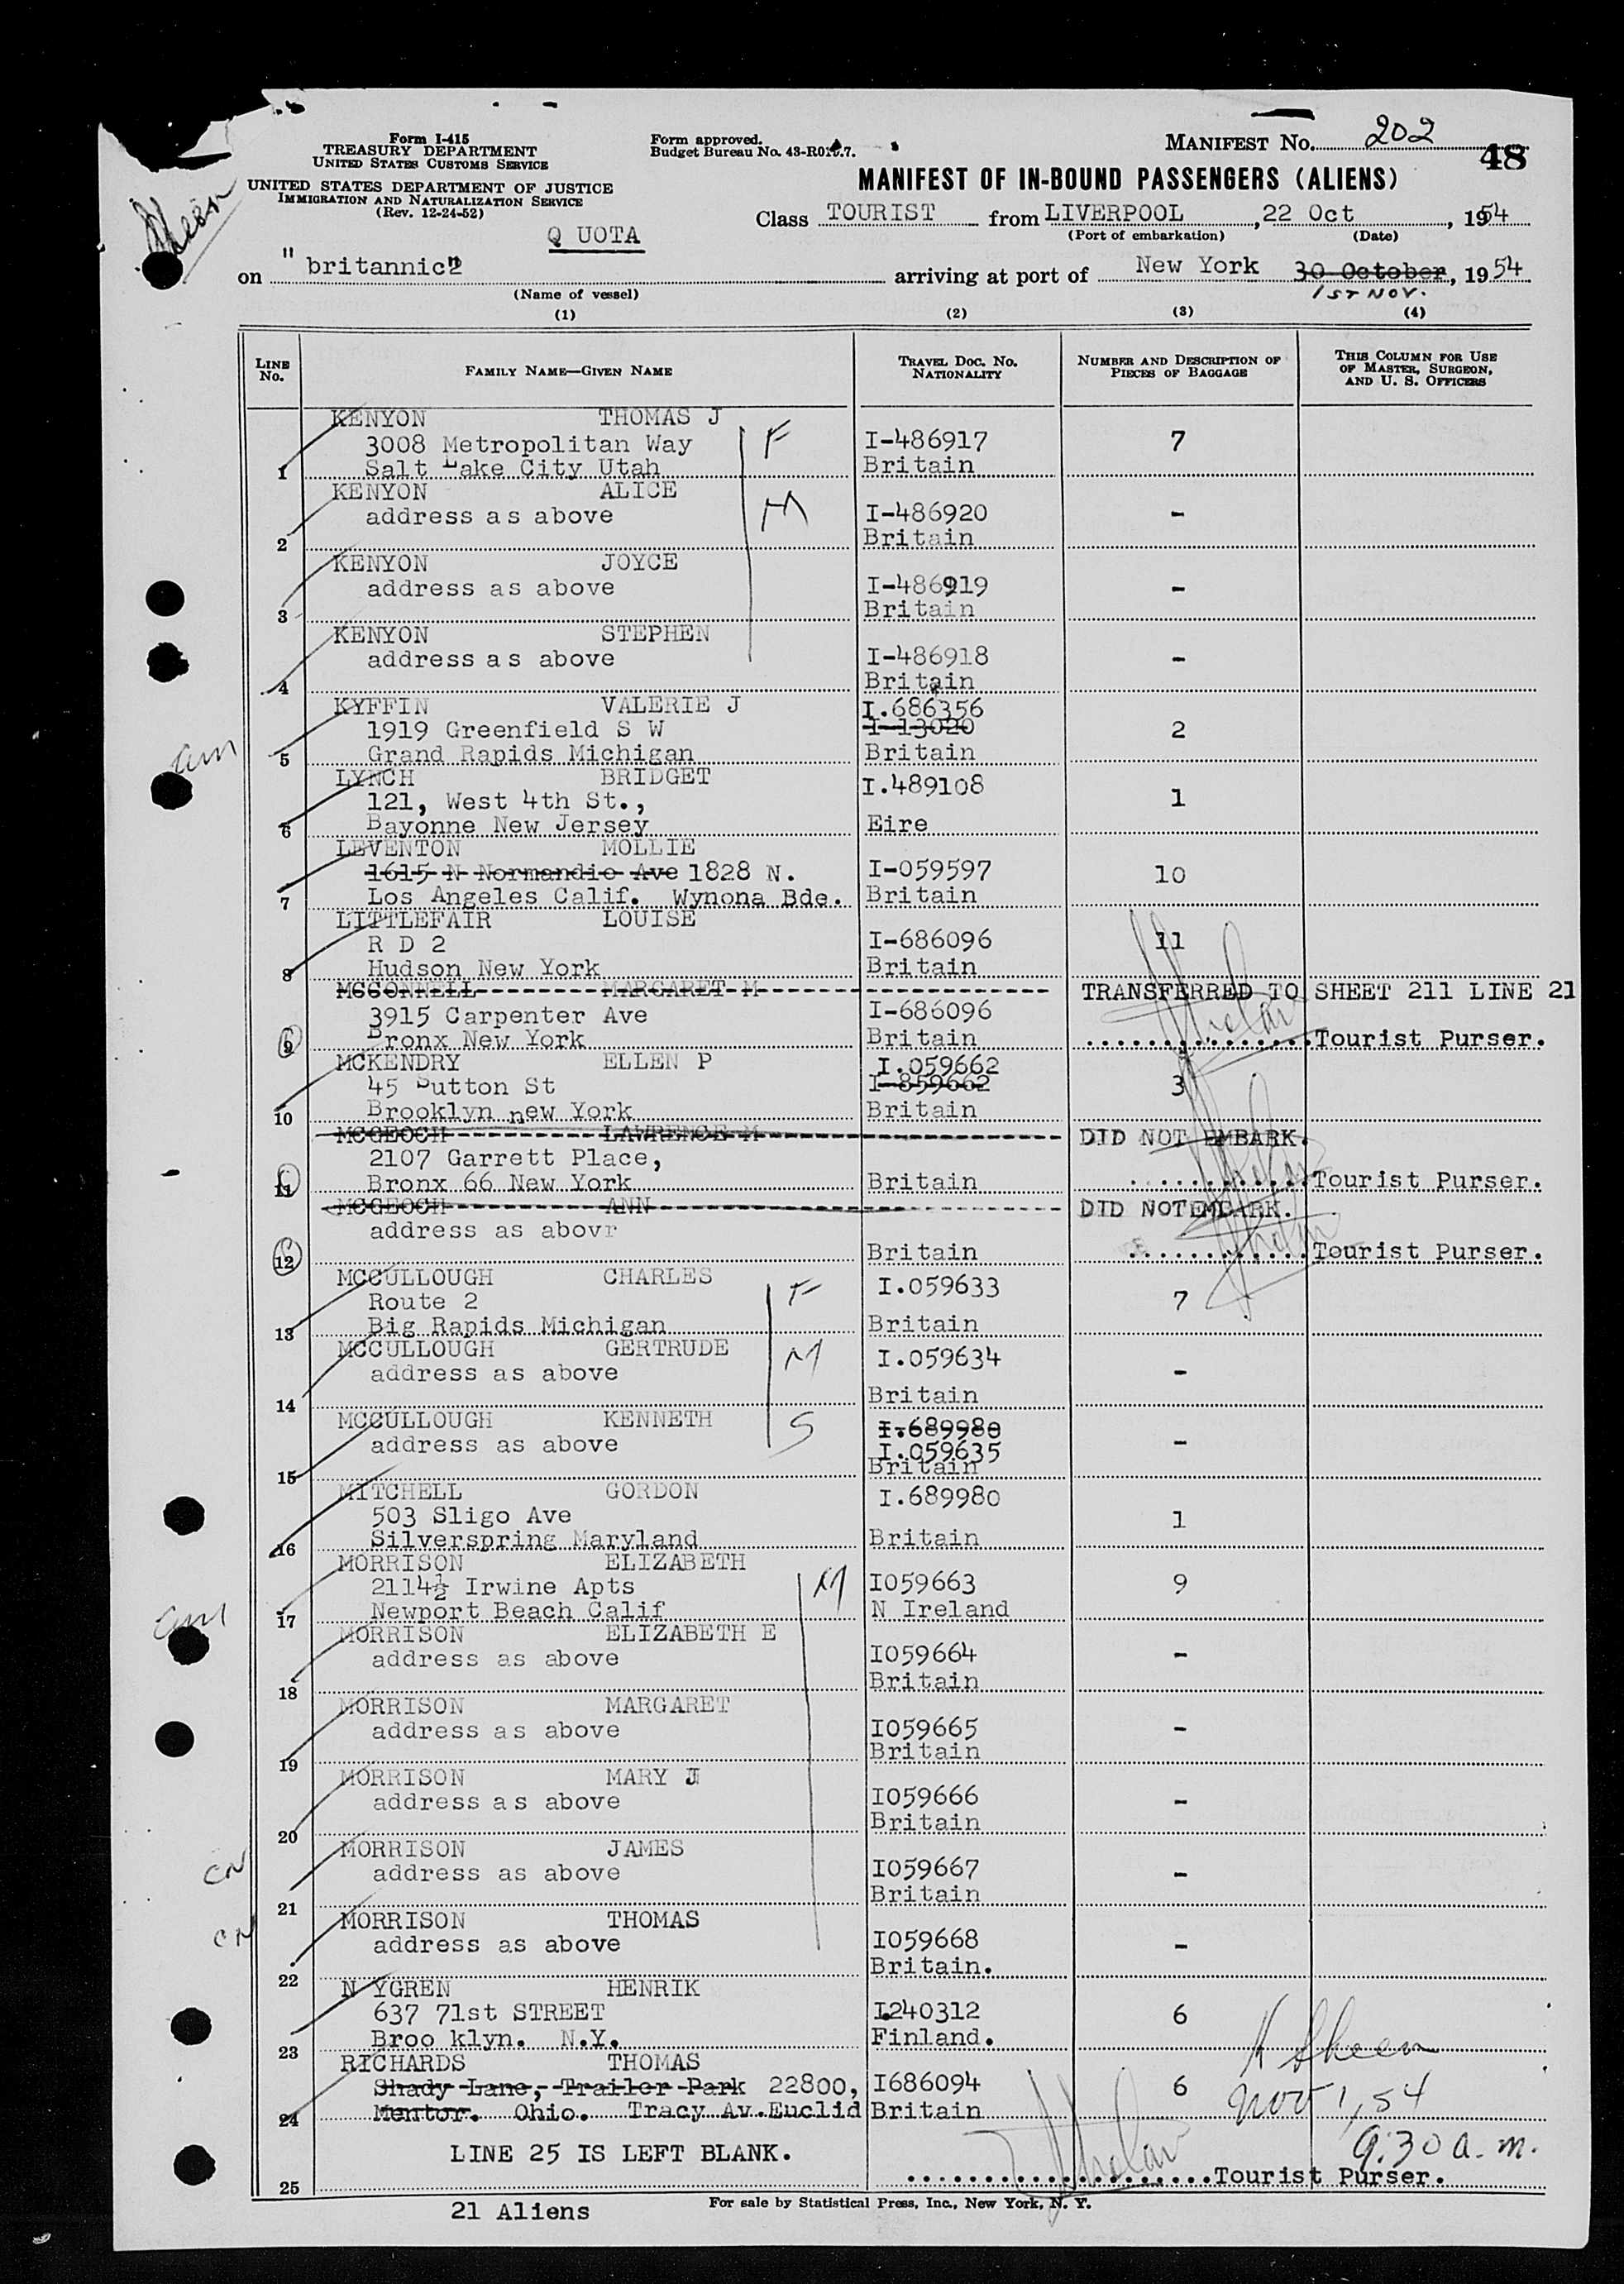 Form I-415
TREASURY DEPARTMENT
UNITED STATES CUSTOMS SERVICE
UNITED STATES DEPARTMENT OF JUSTICE
IMMIGRATION AND NATURALIZATION SERVICE
(Rev. 12-24-52)
Form approved.
Budget Bureau No.
MANIFEST NO. 202
48
MANIFEST OF IN-BOUND PASSENGERS (ALIENS)
Class TOURIST from LIVERPOOL, 22 Oct, 1954
(Port of embarkation) (Date)
Q UOTA
on "britannic" arriving at port of New York 30 October, 1954
1ST NOV.
(Name of vessel)
(1) (2) (3) (4)
LINE No. FAMILY NAME—GIVEN NAME TRAVEL DOC. NO. NATIONALITY NUMBER AND DESCRIPTION OF PIECES OF BAGGAGE THIS COLUMN FOR USE OF MASTER, SURGEON, AND U. S. OFFICERS
KENYON THOMAS J
3008 Metropolitan Way F I-486917 7
1 Salt Lake City Utah Britain
KENYON ALICE
address as above M I-486920 -
2 Britain
KENYON JOYCE
address as above I-486919 -
3 Britain
KENYON STEPHEN
address as above I-486918 -
4 Britain
KYFFIN VALERIE J I.686356
1919 Greenfield S W I-13020 2
5 Grand Rapids Michigan Britain
LYNCH BRIDGET I.489108
121, West 4th St., 1
6 Bayonne New Jersey Eire
LEVENTON MOLLIE
1615 N Normandie Ave 1828 N. I-059597 10
7 Los Angeles Calif. Wynona Bde. Britain
LITTLEFAIR LOUISE
R D 2 I-686096 11
8 Hudson New York Britain
MCCONNELL MARGARET M TRANSFERRED TO SHEET 211 LINE 21
3915 Carpenter Ave I-686096
9 Bronx New York Britain Tourist Purser.
MCKENDRY ELLEN P I.059662
45 Dutton St I-859662 3
10 Brooklyn new York Britain
MCGEOCH LAWRENCE M DID NOT EMBARK.
2107 Garrett Place,
11 Bronx 66 New York Britain Tourist Purser.
MCGEOCH ANN DID NOTEMBARK.
address as abovr
12 Britain Tourist Purser.
MCCULLOUGH CHARLES F I.059633
Route 2 7
13 Big Rapids Michigan Britain
MCCULLOUGH GERTRUDE M I.059634
address as above -
14 Britain
MCCULLOUGH KENNETH S I.689980
address as above I.059635 -
15 Britain
MITCHELL GORDON I.689980
503 Sligo Ave 1
16 Silverspring Maryland Britain
MORRISON ELIZABETH
2114½ Irwine Apts M I059663 9
17 Newport Beach Calif N Ireland
MORRISON ELIZABETH E
address as above I059664 -
18 Britain
MORRISON MARGARET
address as above I059665 -
19 Britain
MORRISON MARY J
address as above I059666 -
20 Britain
MORRISON JAMES
address as above I059667 -
21 Britain
MORRISON THOMAS
address as above I059668 -
22 Britain.
N YGREN HENRIK
637 71st STREET I240312 6
23 Broo klyn. N.Y. Finland.
RICHARDS THOMAS
Shady Lane, Trailer Park 22800, I686094 6
24 Mentor. Ohio. Tracy Av.Euclid Britain
Nov 1, 54
9:30 a.m.
LINE 25 IS LEFT BLANK.
25 Tourist Purser.
21 Aliens
For sale by Statistical Press, Inc., New York, N. Y.